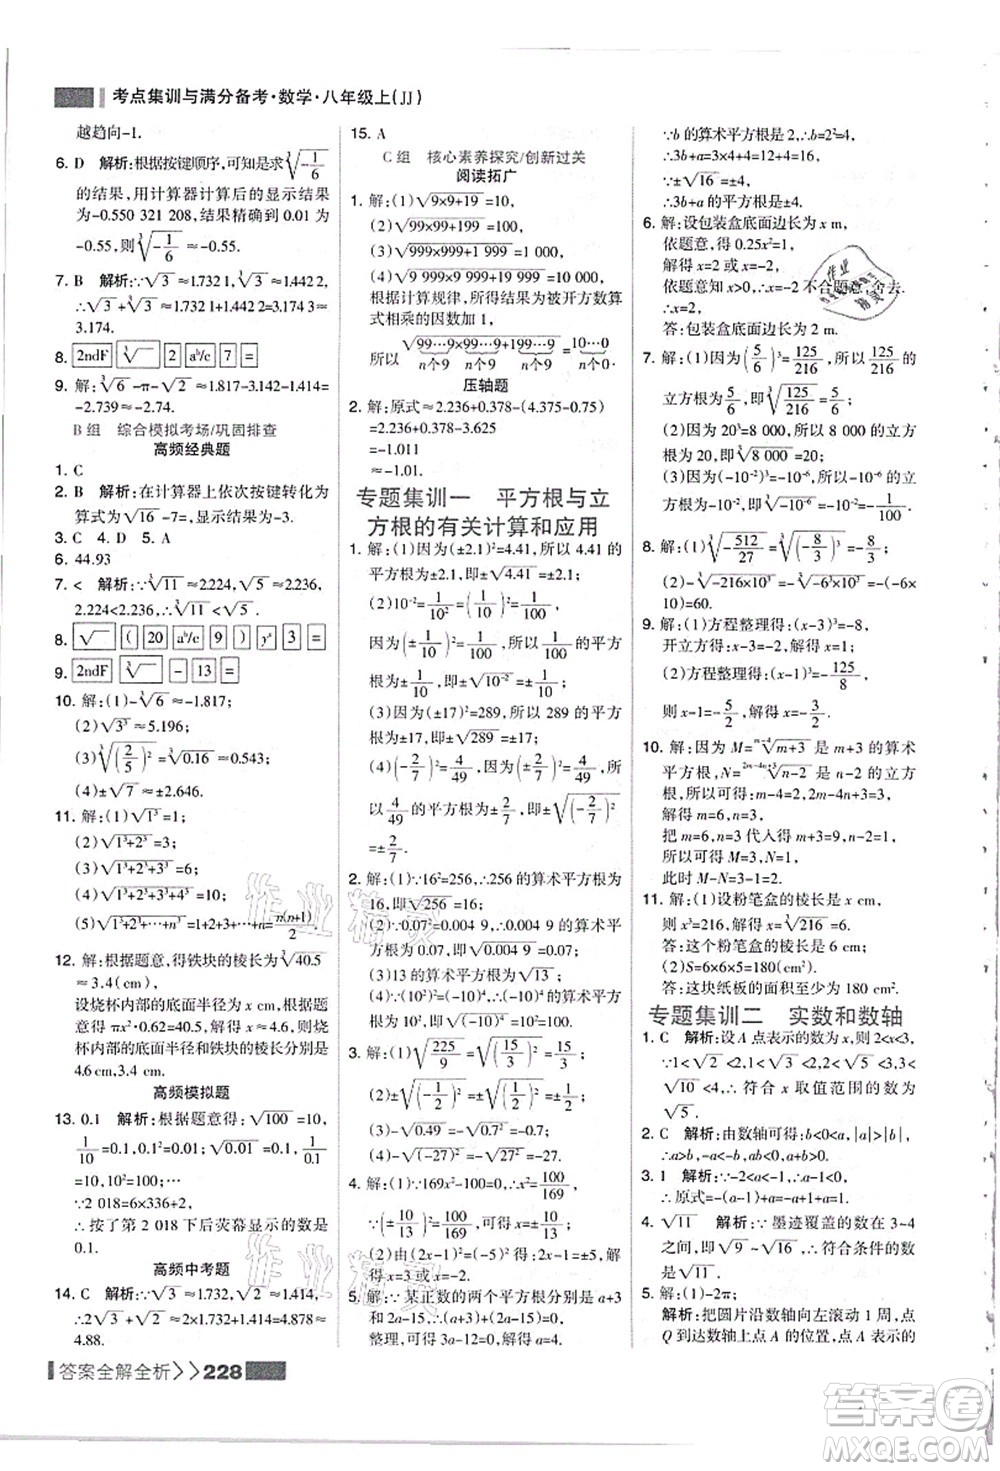 考点集训与满分备考·数学·八年级上(JJ)
越趋向-1.
6. D 解析:根据按键顺序,可知是求∛(-1/6)
的结果,用计算器计算后的显示结果
为-0.550 321 208,结果精确到 0.01 为
-0.55,则∛(-1/6)≈-0.55.
7. B 解析:∵√3≈1.732 1,∛3≈1.442 2,
∴√3+∛3≈1.732 1+1.442 2=3.174 3≈
3.174.
8. 2ndF ∛ 2 a b/c 7 =
9. 解:∛6-π-√2≈1.817-3.142-1.414=
-2.739≈-2.74.
B 组 综合模拟考场/巩固排查
高频经典题
1. C
2. B 解析:在计算器上依次按键转化为
算式为√16-7=,结果为-3.
3. C 4. D 5. A
6. 44.93
7. < 解析:∵∛11≈2.224,√5≈2.236,
2.224<2.236,∴∛11<√5.
8. √ ( 20 a b/c 9 ) yˣ 3 =
9. 2ndF ∛ - 13 =
10. 解:(1)-∛6≈-1.817;
(2)√3³≈5.196;
(3)∛(2/5)²=∛0.16≈0.543;
(4)±√5≈±2.236.
11. 解:(1)√1³=1;
(2)√(1³+2³)=3;
(3)√(1³+2³+3³)=6;
(4)√(1³+2³+3³+4³)=10;
(5)√(1³+2³+3³+…+n³)=1+2+3+…+n=n(n+1)/2.
12. 解:根据题意,得铁块的棱长为∛40.5
≈3.4(cm),
设烧杯内部的底面半径为 x cm,根据
题意得 πx²·0.62=40.5,解得 x≈4.6,则烧
杯内部的底面半径与铁块的棱长分别是
4.6 cm,3.4 cm.
高频模拟题
13. 0.1 解析:根据题意得:√100=10,
1/10=0.1,0.1²=0.01,√0.01=0.1,1/0.1
=10,10²=100,
∵2 018=6×336+2,
∴按了第 2 018 下后荧幕显示的数是
0.1.
高频中考题
14. C 解析:∵√3≈1.732,√2≈1.414,
∴2√3+√2≈2×1.732+1.414=4.878≈
4.88.
15. A
C 组 核心素养探究/创新过关
阅读拓广
1. 解:(1)√(9×9+19)=10,
(2)√(99×99+199)=100,
(3)√(999×999+1 999)=1 000,
(4)√(9 999×9 999+19 999)=10 000,
根据计算规律,所得结果是被开方数算
式相乘的因数加 1.
故√(99…9×99…9+199…9)=10…0.
n个9 n个9 n个9 n个0
压轴题
2. 解:原式≈2.236+0.378-(4.375-0.75)
=2.236+0.378-3.625
=-1.011
≈-1.01.
专题集训一 平方根与立
方根的有关计算和应用
1. 解:(1)因为(±2.1)²=4.41,所以 4.41 的
平方根为±2.1,即±√4.41=±2.1;
(2)10⁻²=1/10²=1/100,
因为(±1/10)²=1/100,所以1/100的平方
根为±1/10,即±√10⁻²=±1/10;
(3)因为(±17)²=289,所以 289 的平方
根为±17,即±√289=±17;
(4)(-2/7)²=4/49,因为(±2/7)²=4/49,所
以4/49的平方根为±2/7,即±√(-2/7)²
=±2/7.
2. 解:(1)∵16²=256,∴256 的算术平方根为
√256=16;
(2)∵0.07²=0.004 9,∴0.004 9 的算术平
方根为√0.004 9=0.07;
(3)13 的算术平方根为√13;
(4)(-10)⁴的算术平方根为√(-10)⁴=
(-10)²=100.
3. 解:(1)√(225/9)=√(15/3)²=15/3=5;
(2)-√(-1/2)²=-√(1/2)²=-1/2;
(3)-√0.49=-√0.7²=-0.7;
(4)√(-27)²=√27²=27.
4. 解:(1)∵169x²=100,∴x²=100/169,
∵(±10/13)²=100/169,∴x=±10/13;
(2)∵(2x-1)²-4=0,∴(2x-1)²=4,
∵(±2)²=4,∴2x-1=±2,∴x=3/2或-1/2.
5. 解:∵某正数的两个平方根分别是 a+3
和 2a-15,∴a+3+2a-15=0,
整理得 3a-12=0,解得 a=4,
∵b 的算术平方根是 2,∴b=2²=4,
∴3b+a=3×4+4=12+4=16,
∴±√16=±4,
∴3b+a 的平方根是±4.
6. 解:设包装盒底面边长为 x m,
依题意,得 0.25x²=1,
解得 x=2 或 x=-2,
依题意知 x>0,∴x=-2 不合题意,舍去.
∴x=2,
答:包装盒底面边长为 2 m.
7. 解:(1)因为(5/6)³=125/216,所以125/216的
立方根为5/6,即∛(125/216)=5/6;
(2)因为 20³=8 000,所以 8 000 的立方
根为 20,即∛8 000=20;
(3)(-10⁻²)³=-10⁻⁶,所以-10⁻⁶的立方
根为-10⁻²,即∛(-10⁻⁶)=-10⁻²=-1/100.
8. 解:(1)∛(-512/27)=∛(-8/3)³=-8/3;
(2)-∛(-216×10³)=-∛(-6×10)³=-(-6×
10)=60.
9. 解:(1)方程整理得:(x-3)³=-8,
开立方得:x-3=-2,解得 x=1;
(2)方程整理得:(x-1)³=-125/8,
开立方得:x-1=-5/2,解得 x=-3/2.
10. 解:因为 M=ᵐ⁻⁴√(m+3)是 m+3 的算术
平方根,N=²ᵐ⁻⁴ⁿ⁺³√(n-2)是 n-2 的立方根,
所以可得:m-4=2,2m-4n+3=3,
解得:m=6,n=3,
把 m=6,n=3 代入得 m+3=9,n-2=1,
所以可得 M=3,N=1,
此时 M-N=3-1=2.
11. 解:(1)设粉笔盒的棱长是 x cm,
x³=216,解得 x=∛216=6.
答:这个粉笔盒的棱长是 6 cm;
(2)S=6×6×5=180(cm²),
答:这块纸板的面积至少为 180 cm².
专题集训二 实数和数轴
1. C 解析:设 A 点表示的数为 x,则 2<x<3,
∵1<√2<2,1<√3<2,2<√5<3,3<
√10<4,∴符合 x 取值范围的数为
√5.
2. C 解析:由数轴可得:b<0<a,|a|>|b|,
∴a>b,-a<-b,ab<0,b+a>0.
3. 1 解析:∵-2<a<-1,∴a+1<0,
∴原式=-(a+1)-(-a-2)=1.
4. √11 解析:∵墨迹覆盖的数在 3~4
之间,即√9~√16,∴符合条件的数
是√11.
5. 解:(1)-2π;
解析:把圆片沿数轴向左滚动 1 周,点
Q 到达数轴上点 A 的位置,点 A 表示的
答案全解全析>>228
作业精灵
作业精灵
答案卷
MXQE.COM